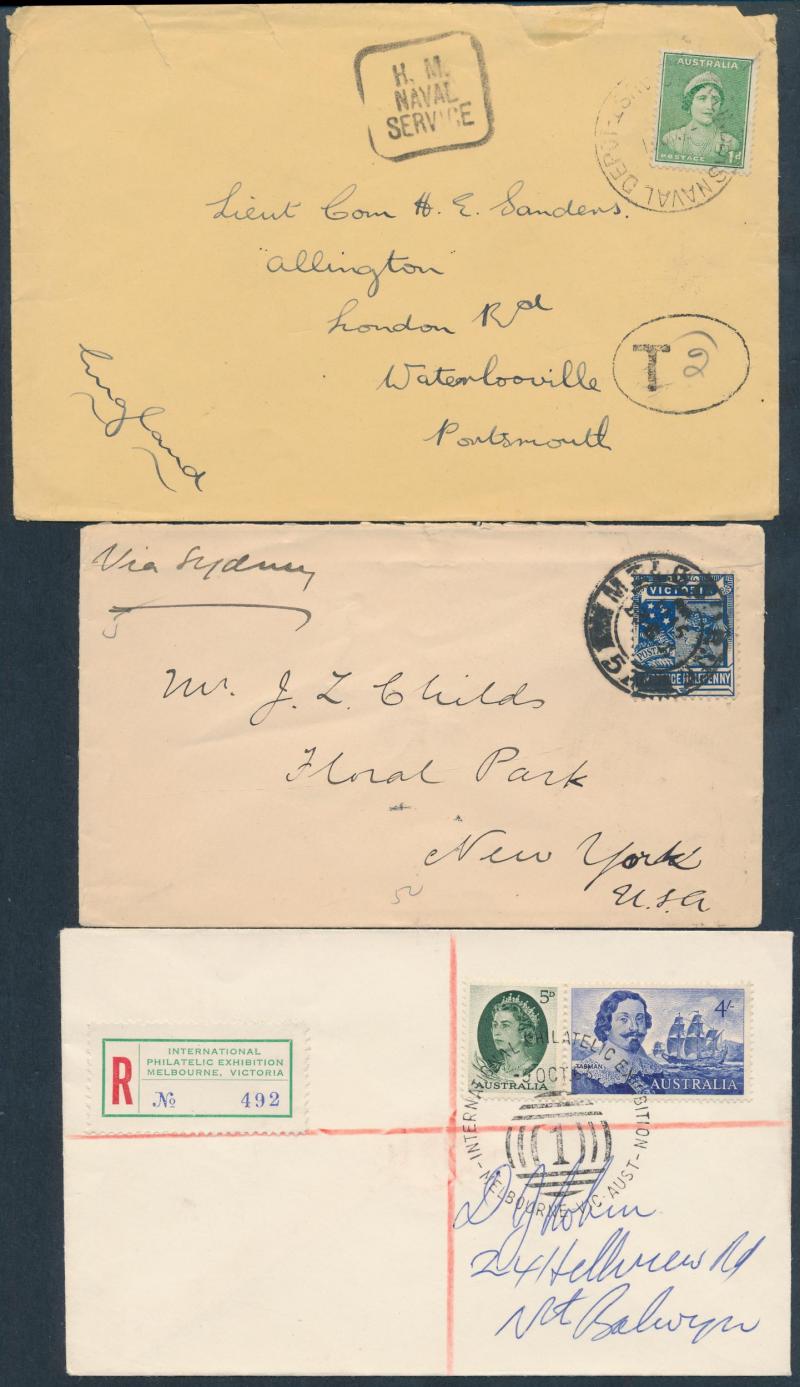 H. M.
NAVAL
SERVICE
AUSTRALIA
POSTAGE 1d
NAVAL DEPOT
Lieut Com H. E. Sanders.
"Allington"
London Rd
Waterlooville
Portsmouth
England
T 2
Via Sydney
VICTORIA
HALFPENNY
MELB
5
Mr. J. L. Childs
Floral Park
New York
U.S.A
50
R
INTERNATIONAL
PHILATELIC EXHIBITION
MELBOURNE, VICTORIA
No 492
5D
AUSTRALIA
4/-
TASMAN
AUSTRALIA
INTERNATIONAL PHILATELIC EXHIBITION
OCT
1
MELBOURNE VIC AUST
24 Hellview Rd
Nt Balwyn